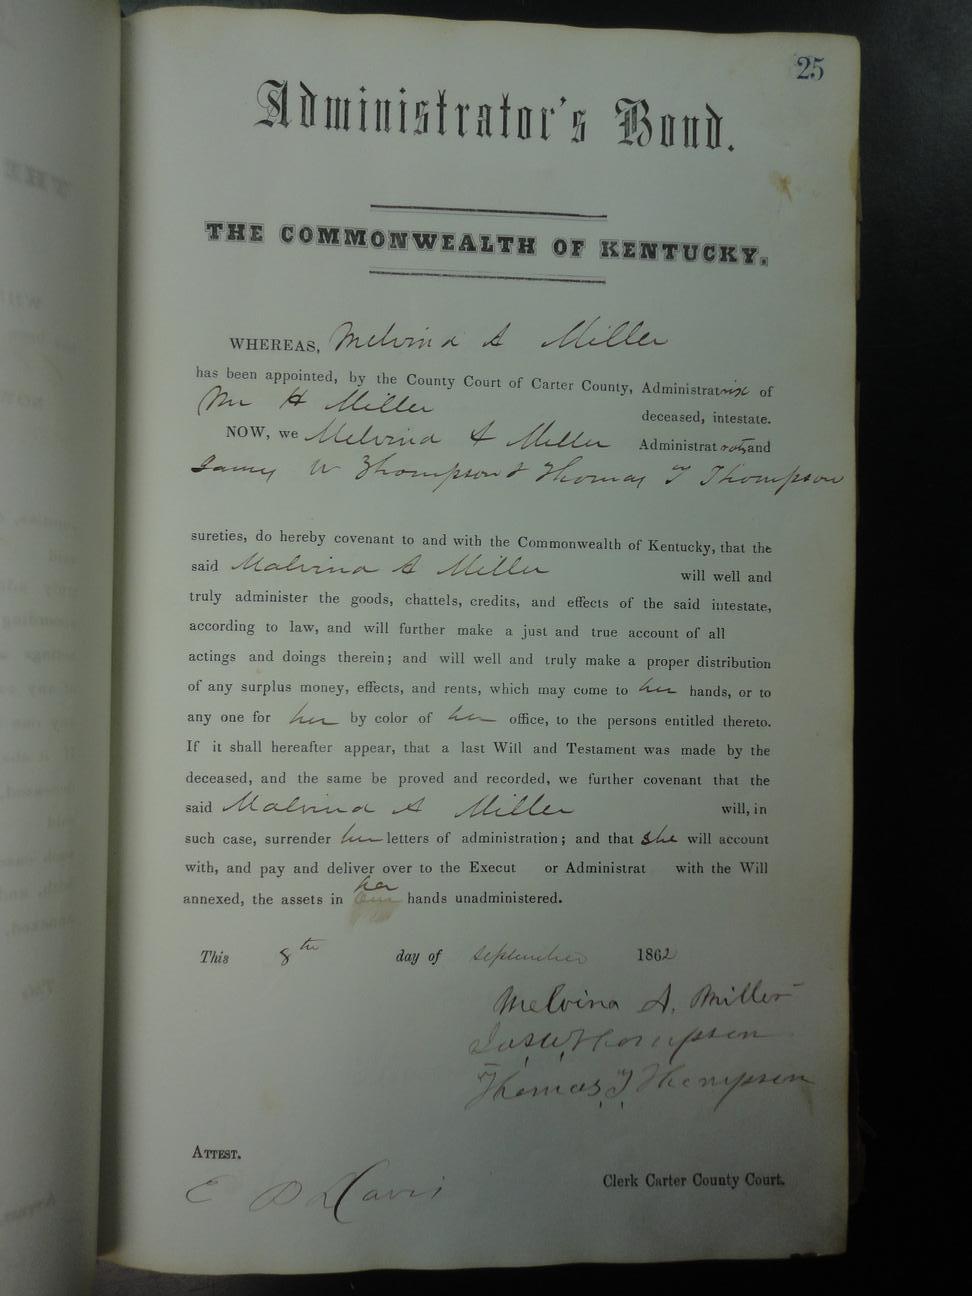 25
Administrator's Bond.
THE COMMONWEALTH OF KENTUCKY.
WHEREAS, Melvina A Miller
has been appointed, by the County Court of Carter County, Administratrix of
Wm H Miller deceased, intestate.
NOW, we Melvina A Miller Administrat and
James W Thompson & Thomas T Thompson
sureties, do hereby covenant to and with the Commonwealth of Kentucky, that the
said Malvina A Miller will well and
truly administer the goods, chattels, credits, and effects of the said intestate,
according to law, and will further make a just and true account of all
actings and doings therein; and will well and truly make a proper distribution
of any surplus money, effects, and rents, which may come to her hands, or to
any one for her by color of her office, to the persons entitled thereto.
If it shall hereafter appear, that a last Will and Testament was made by the
deceased, and the same be proved and recorded, we further covenant that the
said Malvina A Miller will, in
such case, surrender her letters of administration; and that she will account
with, and pay and deliver over to the Execut or Administrat with the Will
her
annexed, the assets in hands unadministered.
This 8th day of September 1862
Melvina A. Miller
Jas W Thompson
Thomas T Thompson
ATTEST.
E D Davis Clerk Carter County Court.